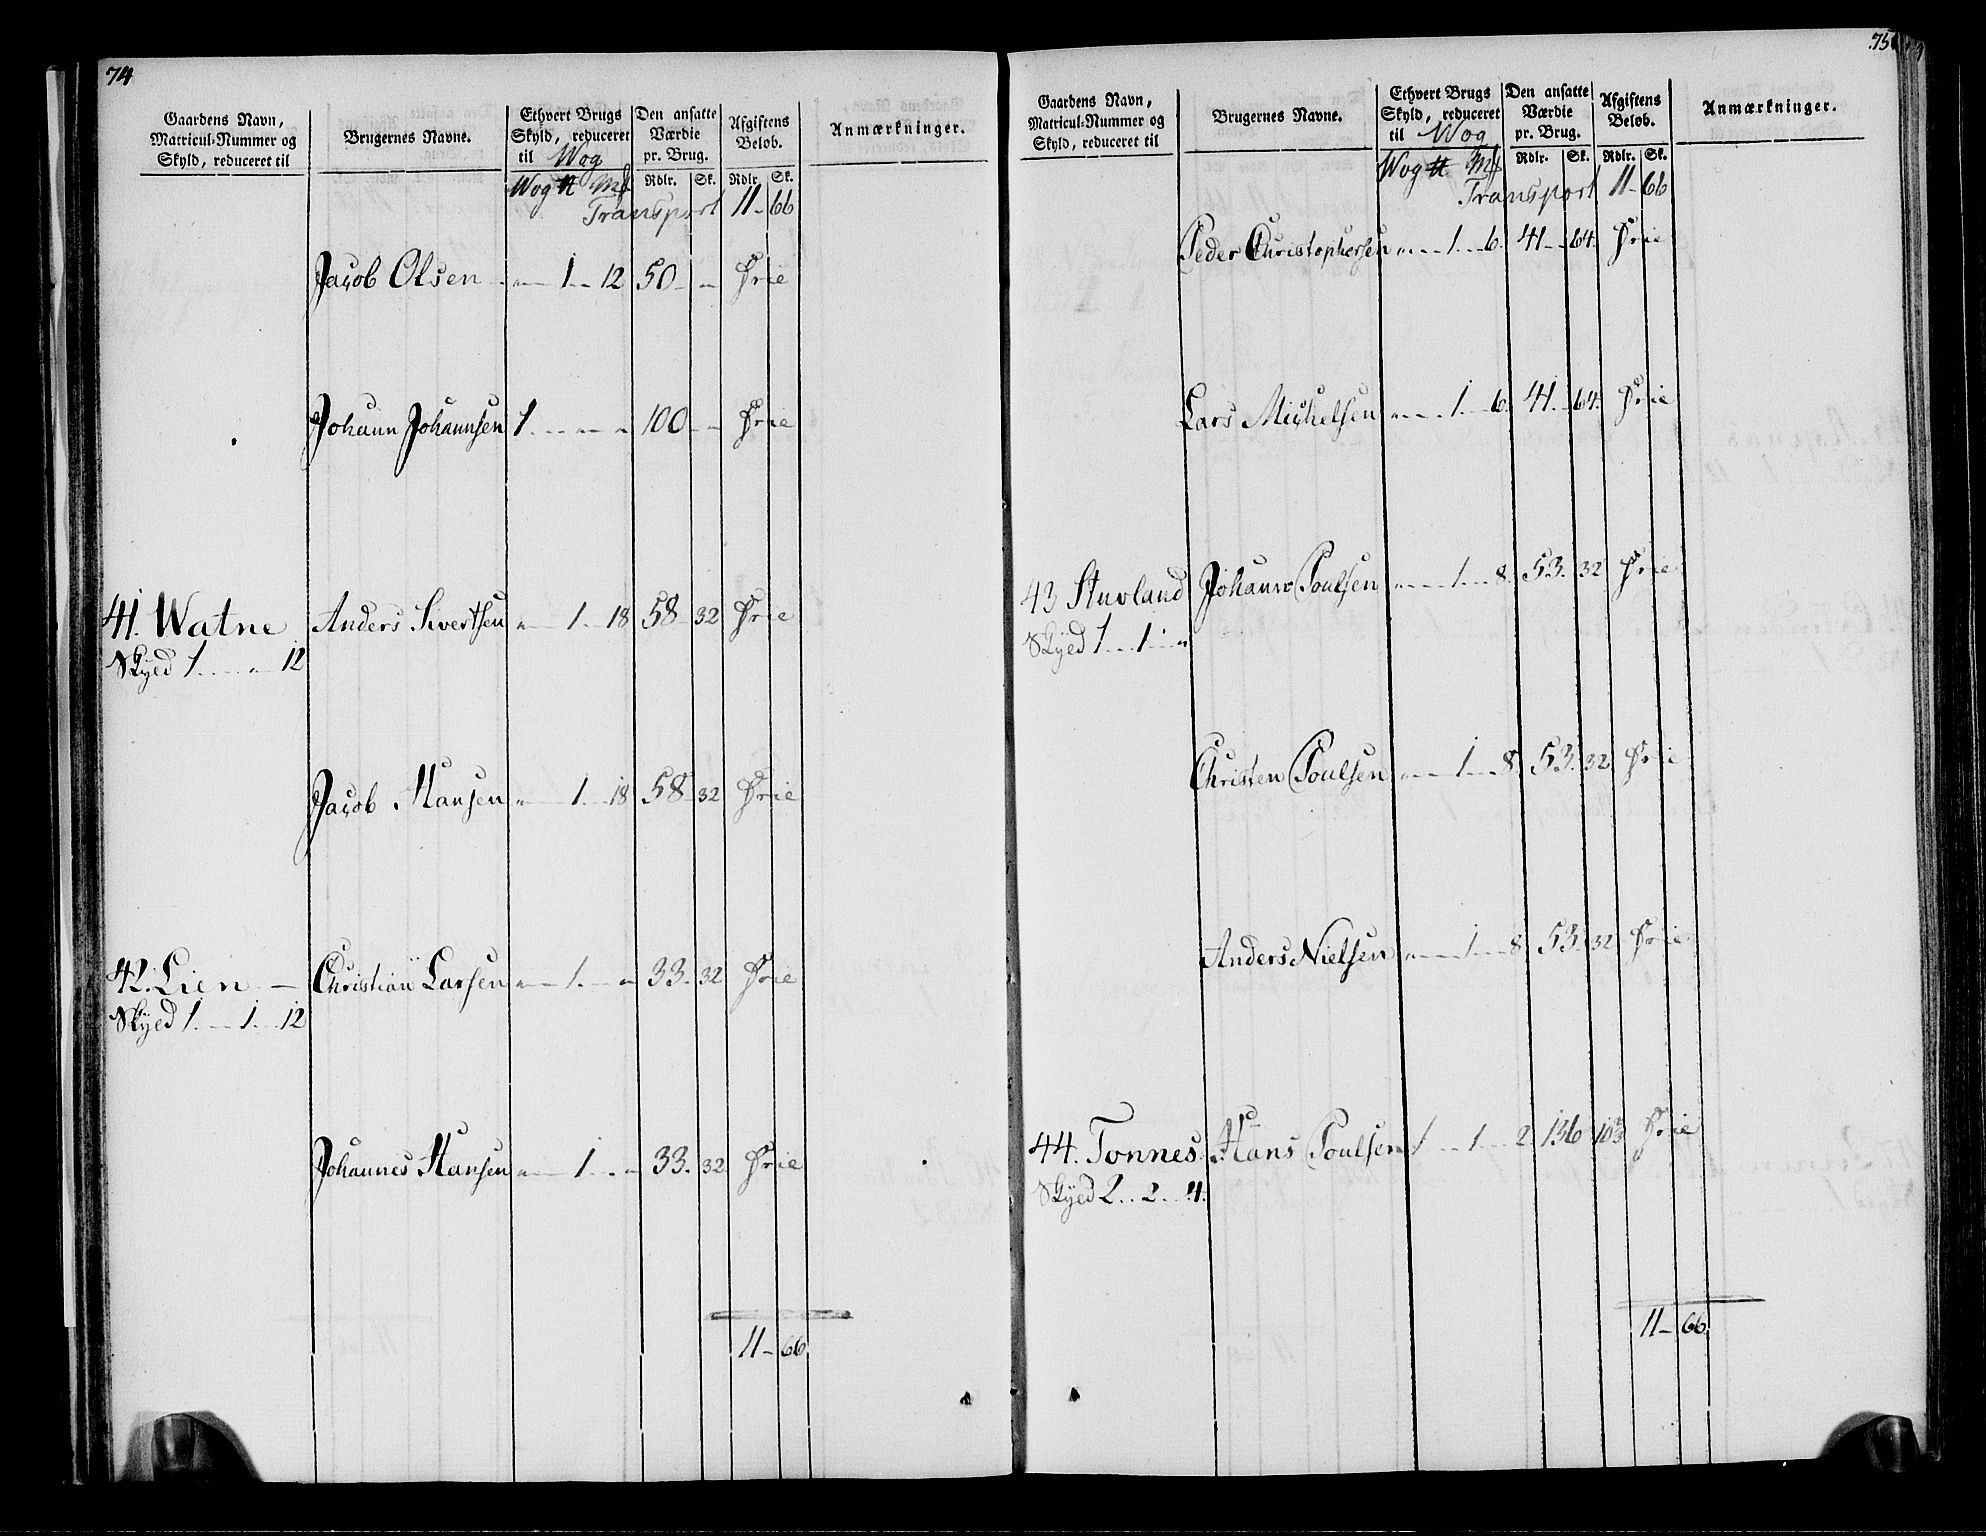 74
Gaardens Navn, Matricul-Nummer og Skyld, reduceret til | Brugernes Navne. | Ethvert Brugs Skyld, reduceret til Wog | Den ansatte Værdie pr. Brug. | Afgiftens Beløb. | Anmærkninger.
Wog ℔ Mk | Rdlr. | Sk. | Rdlr. | Sk.
Transport 11 - 66
Jacob Olsen - " - 1 - 12 | 50 - - | Frie
Johann Johannsen 1 - - " - " | 100 - - | Frie
41. Watne | Anders Sivertsen " - 1 - 18 | 58 - 32 | Frie
Skyld 1 - - " - 12
Jacob Hansen " - 1 - 18 | 58 - 32 | Frie
42. Lien - | Christian Larsen " - 1 - - " | 33 - 32 | Frie
Skyld 1 - 1 - 12
Johannes Hansen " - 1 - - " | 33. 32 | Frie
11 - 66
75
Gaardens Navn, Matricul-Nummer og Skyld, reduceret til | Brugernes Navne. | Ethvert Brugs Skyld, reduceret til Wog | Den ansatte Værdie pr. Brug. | Afgiftens Beløb. | Anmærkninger.
Wog ℔ Mk | Rdlr. | Sk. | Rdlr. | Sk.
Transport 11 - 66
Peder Christophersen " - - 1 - 6. | 41 - 64. | Frie
Lars Michelsen " - - 1 - 6. | 41. - 64. | Frie
43 Stuvland | Johann Poulsen " - - 1 - 8. | 53. 32 | Frie
Skyld 1 - 1 - "
Christen Poulsen " - - 1 - 8. | 53. 32 | Frie
Anders Nielsen " - - 1 - 8. | 53. 32 | Frie
44. Tonnes. | Hans Poulsen 1 - 1 - 2 | 136 | Frie
Skyld 2 - 2 - 4.
11 - 66